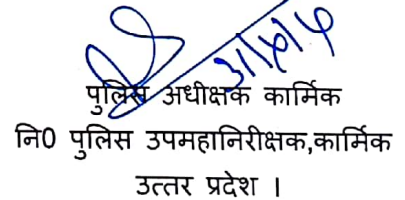 पुलिस अधीक्षक कार्मिक
नि0 पुलिस उपमहानिरीक्षक,कार्मिक
उत्तर प्रदेश ।